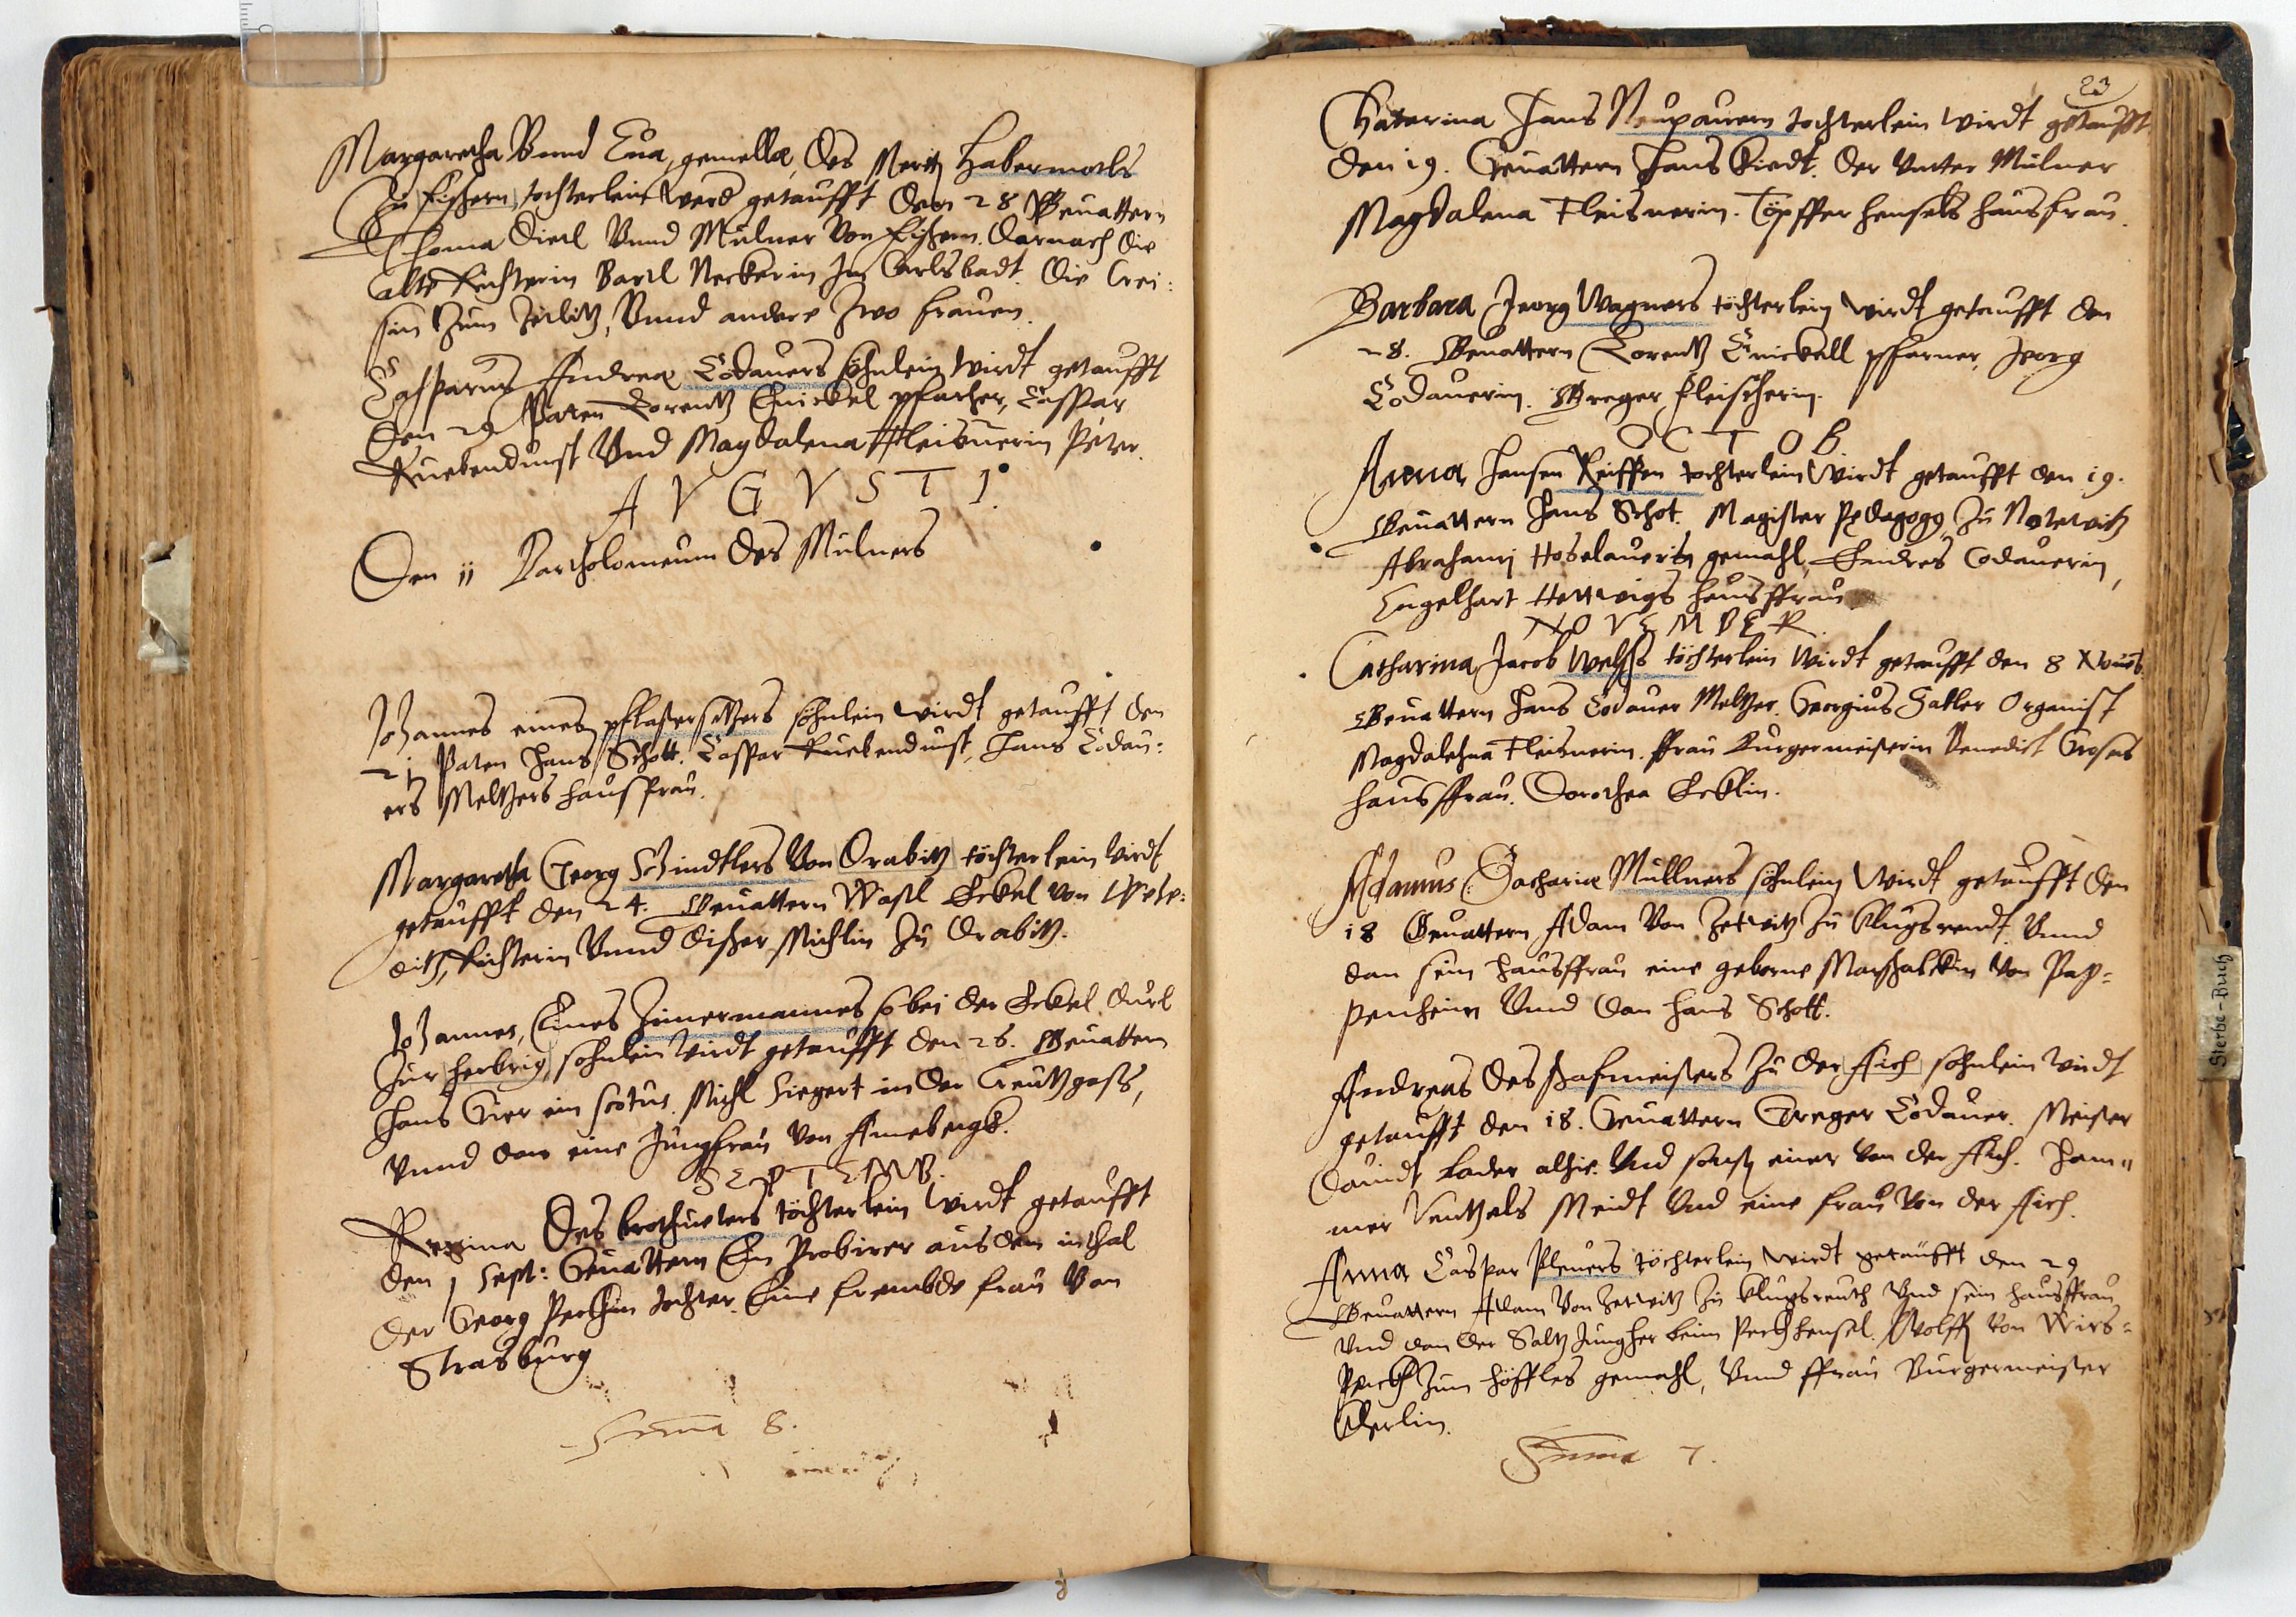 Margaretha Vnnd Eua, gemellæ, des Merth Habermoels
Zu Fischern, tochterlein werd getaufft den 28 Geuattern
Thoma Dietl Vnnd Mülner Von Fischern. darnach die
alte Richterin Bartl Neckerin Im Carlsbadt. die Crei:
sin Zum Zetlitz, Vnnd andere Zwo frauen.
Casparus Andreæ Lodauers söhnlein wirdt getaufft
den 29 Paten Lorentz Knickel pfarher, Caspar
Ruebendunst Vnd Magdalena Fleisnerin Peter.
AVGVSTI.
Den ii Bartholomeum des Mulners
Johannes eines pflastersetzers söhnlein wirdt getaufft den
21 Paten Hans Schott. Caspar Ruebendunst, Hans Lodau:
ers Meltzers hausfrau.
Margaretha Georg Schindtlers Von Drabitz töchterlein wirdt
getaufft den 24. Geuattern Wastl Eckel von Wehe:
ditz, Richterin Vnnd Michlin Zu Drabitz.
Johannes, Eines Zimermannes so bei der Eckel durl
Zur herbrig, sohnlein wirdt getaufft den 26. Geuattern
Hans Gier ein scotus. Michl Siegert in der Creutzgass,
Vnnd dan eine Jungfrau von Annebergk.
SEPTEMB.
Regina des brothueters töchterlein wirdt getaufft
den 1 Sept: Geuattern Ein Probirer aus dem inthal
der Georg tochter. Eine frembde frau Von
Strasburg
Suma 8.
23
Chaterina Hans Neupauern tochterlein wirdt getaufft
den 19. Geuattern Hans Riedt. der Vnter Mülner
Magdalena Fleisnerin. Töpffer hensels hausfrau.
Barbara Jeorg Wagners töchterlein wirdt getaufft den
28. Geuattern Lorentz Knickell pfarner, Jeorg
Lodauerin. Greger fleischerin.
OCTOB.
Anna Hansen Reiffen tochterlein wirdt getaufft den 19.
Geuattern Hans Schot. Magister Pedagog9 Zu
Abrahami Hoselauers gemahl, Endres Lodauerin,
Engelhart Hertwigs hausffrau
NOVEMBER.
Catharina Jacob Welss töchterlein wirdt getaufft den 8 Nouēb.
Geuattern Hans Lodauer Meltzer. Georgius Satler Organist
Magdalehna Fleisnerin. ffrau Burgermeisterin Benedict Groses
hausffrau. Dorothea Ecklin.
Adamus Zachariæ Müllners söhnlein wirdt getaufft den
18 Geuattern Adam Von Zetwitz Zu Klugsreudt, Vnnd
dan sein hausffrau eine geborne Marschalckin von Pap=
penheim Vnnd dan Hans Schott.
Andreas des schafmeisters Zu der Aich sohnlein wirdt
getaufft den 18. Geuattern Greger Lodauer. Meister
Dauidt bader alhie. Vnd sonst einer von der Aich. Ham=
mer Ventzels Meidt Vnd eine frau Von der Aich.
Anna Caspar Pleuers töchterlein wirdt getaufft den 29
Geuattern Adam von Zetwitz Zu Klugsreuth Vnd sein hausffrau
Vnd dan der Saltz Jungher beim hensel. Wolff von Wirs=
perck Zum höffles gemahl, Vnnd ffrau Burgermeister
Suma 7.
Sterbe-Buch